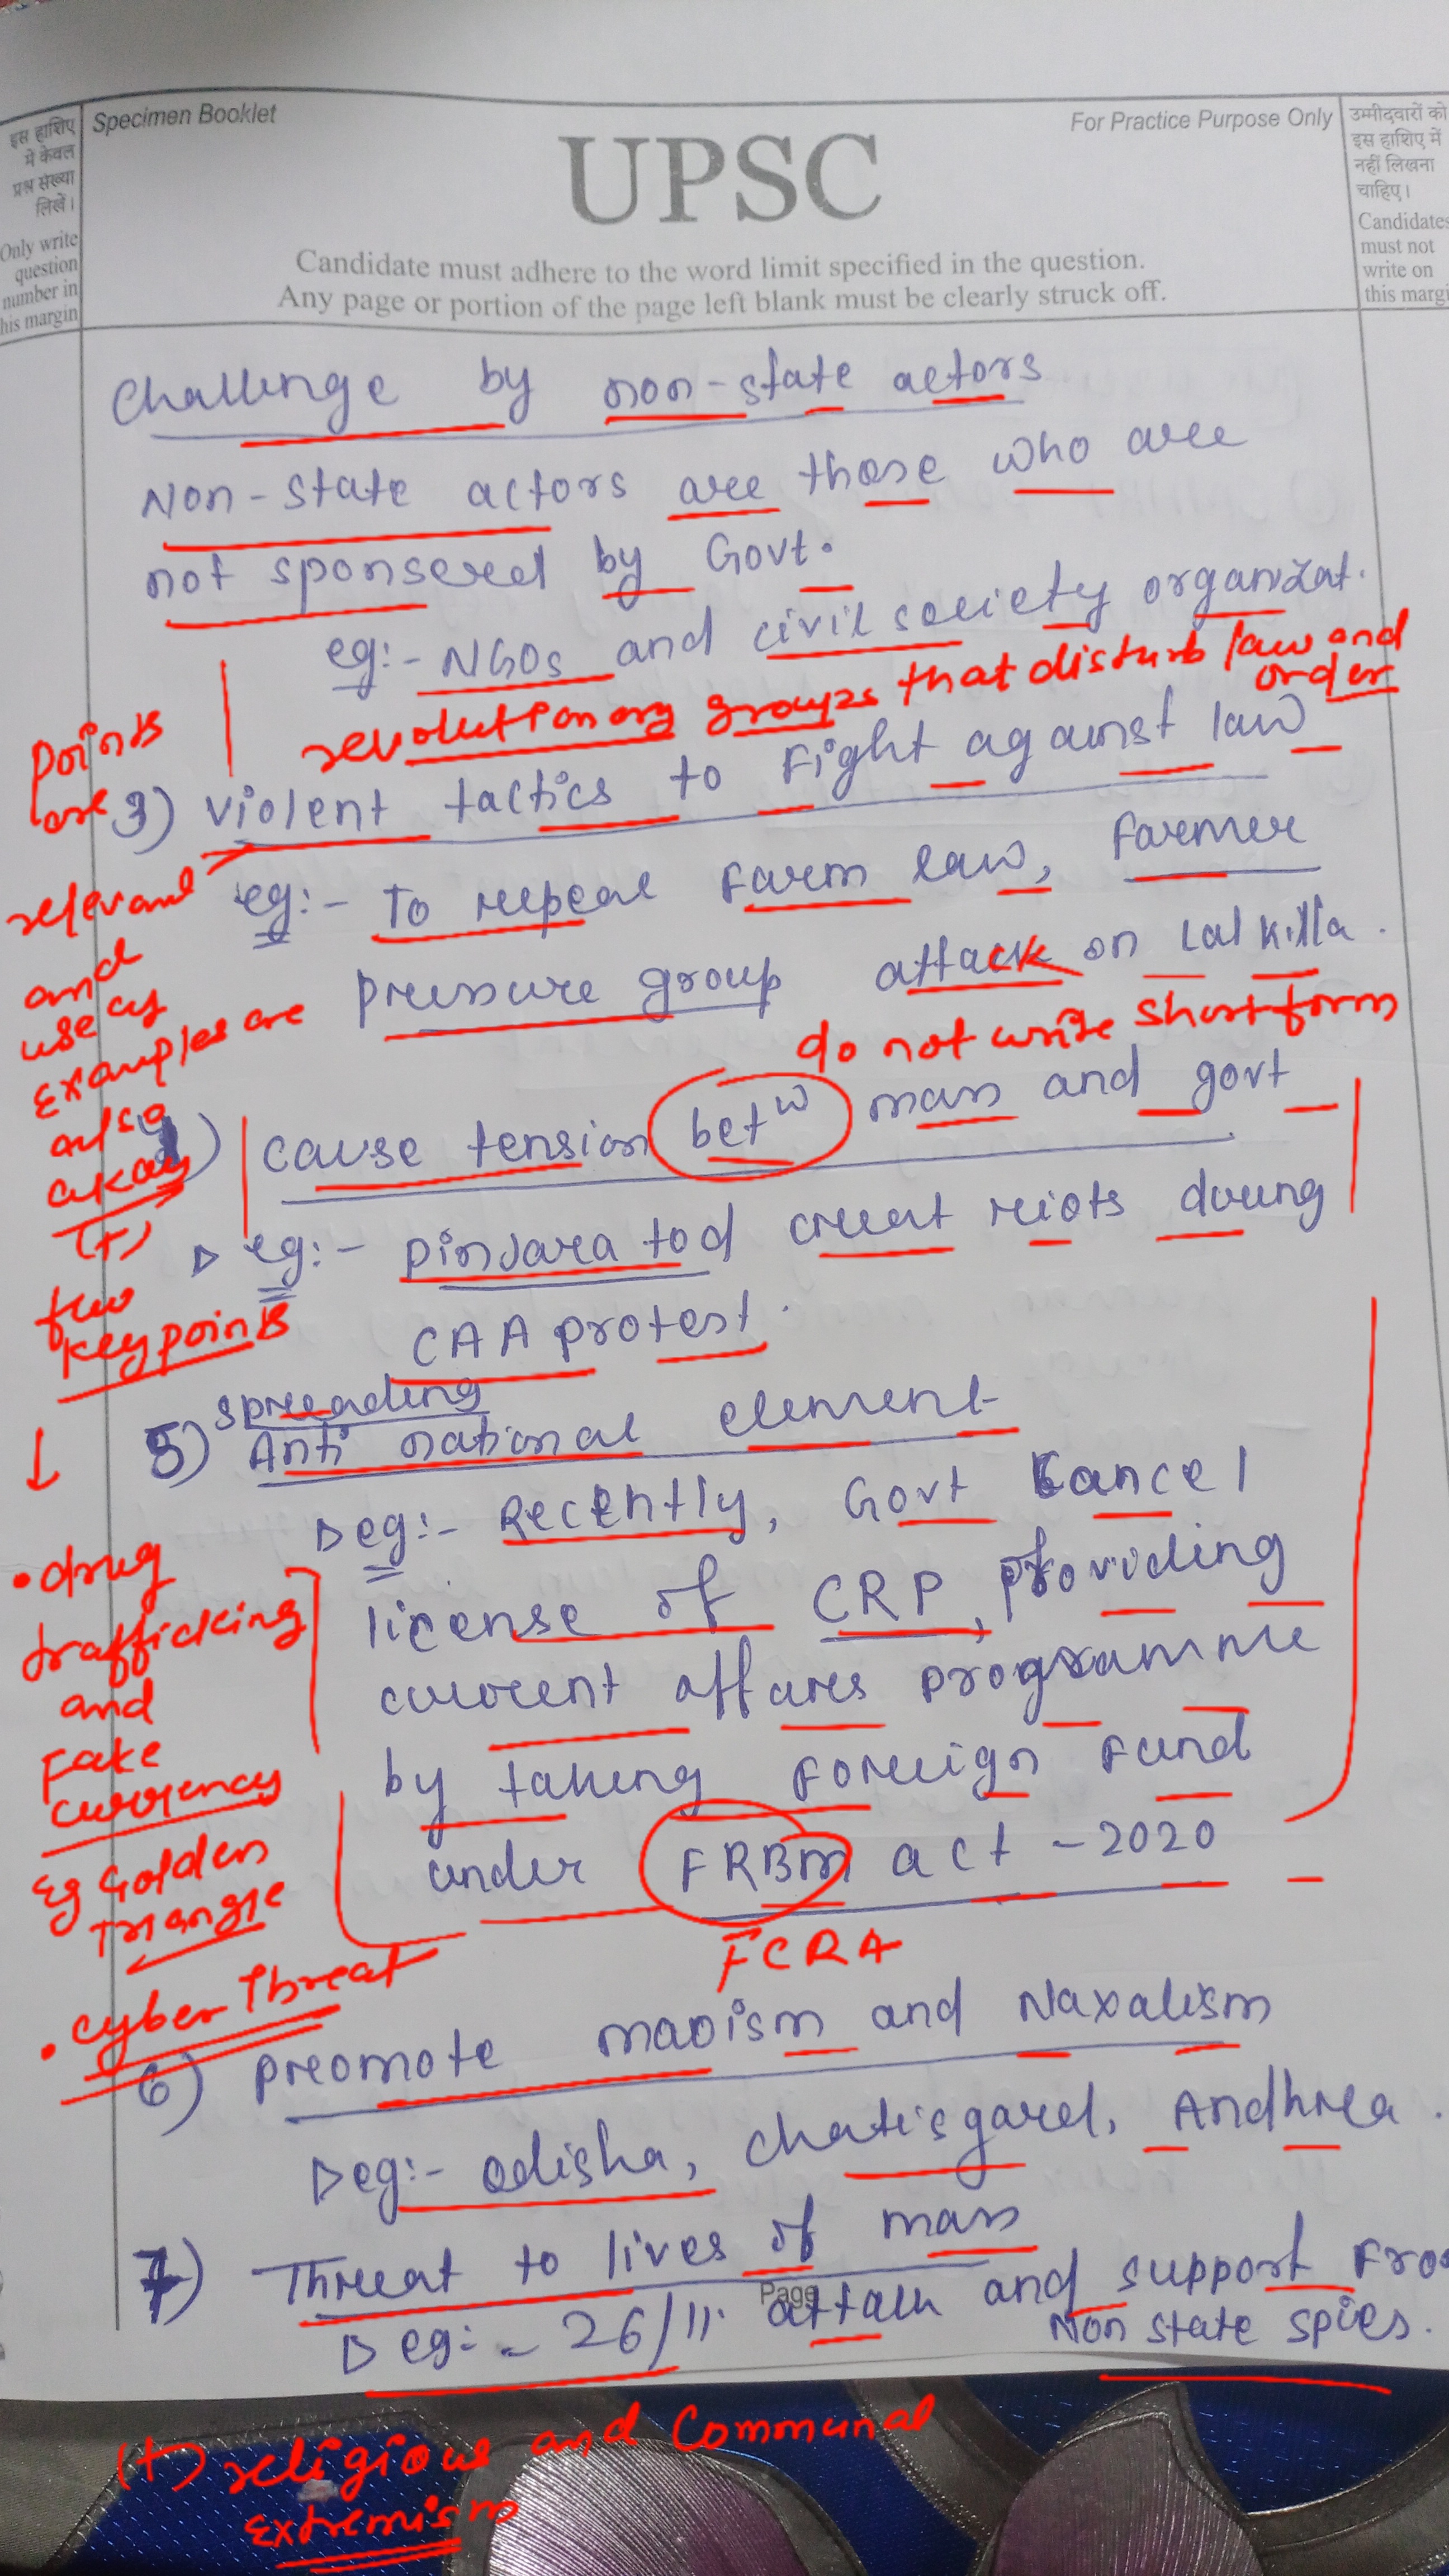 इस हाशिए
में केवल
प्रश्न संख्या
लिखें।
Only write
question
number in
his margin
Specimen Booklet
For Practice Purpose Only
UPSC
Candidate must adhere to the word limit specified in the question.
Any page or portion of the page left blank must be clearly struck off.
उम्मीदवारों को
इस हाशिए में
नहीं लिखना
चाहिए।
Candidates
must not
write on
this margi
Challenge by non-state actors
Non-state actors are those who are
not sponsered by Govt.
eg:- NGOs and civil society organizat.
revolutionary groups that disturb law and
order
3) violent tactics to Fight against law
eg:- To repeal Farm law, Farmer
pressure group attack on Lal Killa.
do not write short form
4) cause tension betw mass and govt
eg:- pinjara tod creat riots during
CAA protest.
spreading
5) Anti national element
eg:- Recently, Govt Cancel
license of CRP, providing
current affares programme
by taking Foreign Fund
under FRBM act - 2020
FCRA
6) Preomote maoism and Naxalism
eg:- Odisha, Chatisgard, Andhra.
7) Threat to lives of mass
Page
eg:- 26/11 attack and support Fro
Non state spies.
points
are
relevant
and
examples are
also
okay
(+)
few
keypoints
• drug
trafficking
and
Fake
currency
Eg Golden
Triangle
• cyber Threat
(+) religious and Communal
Extremism